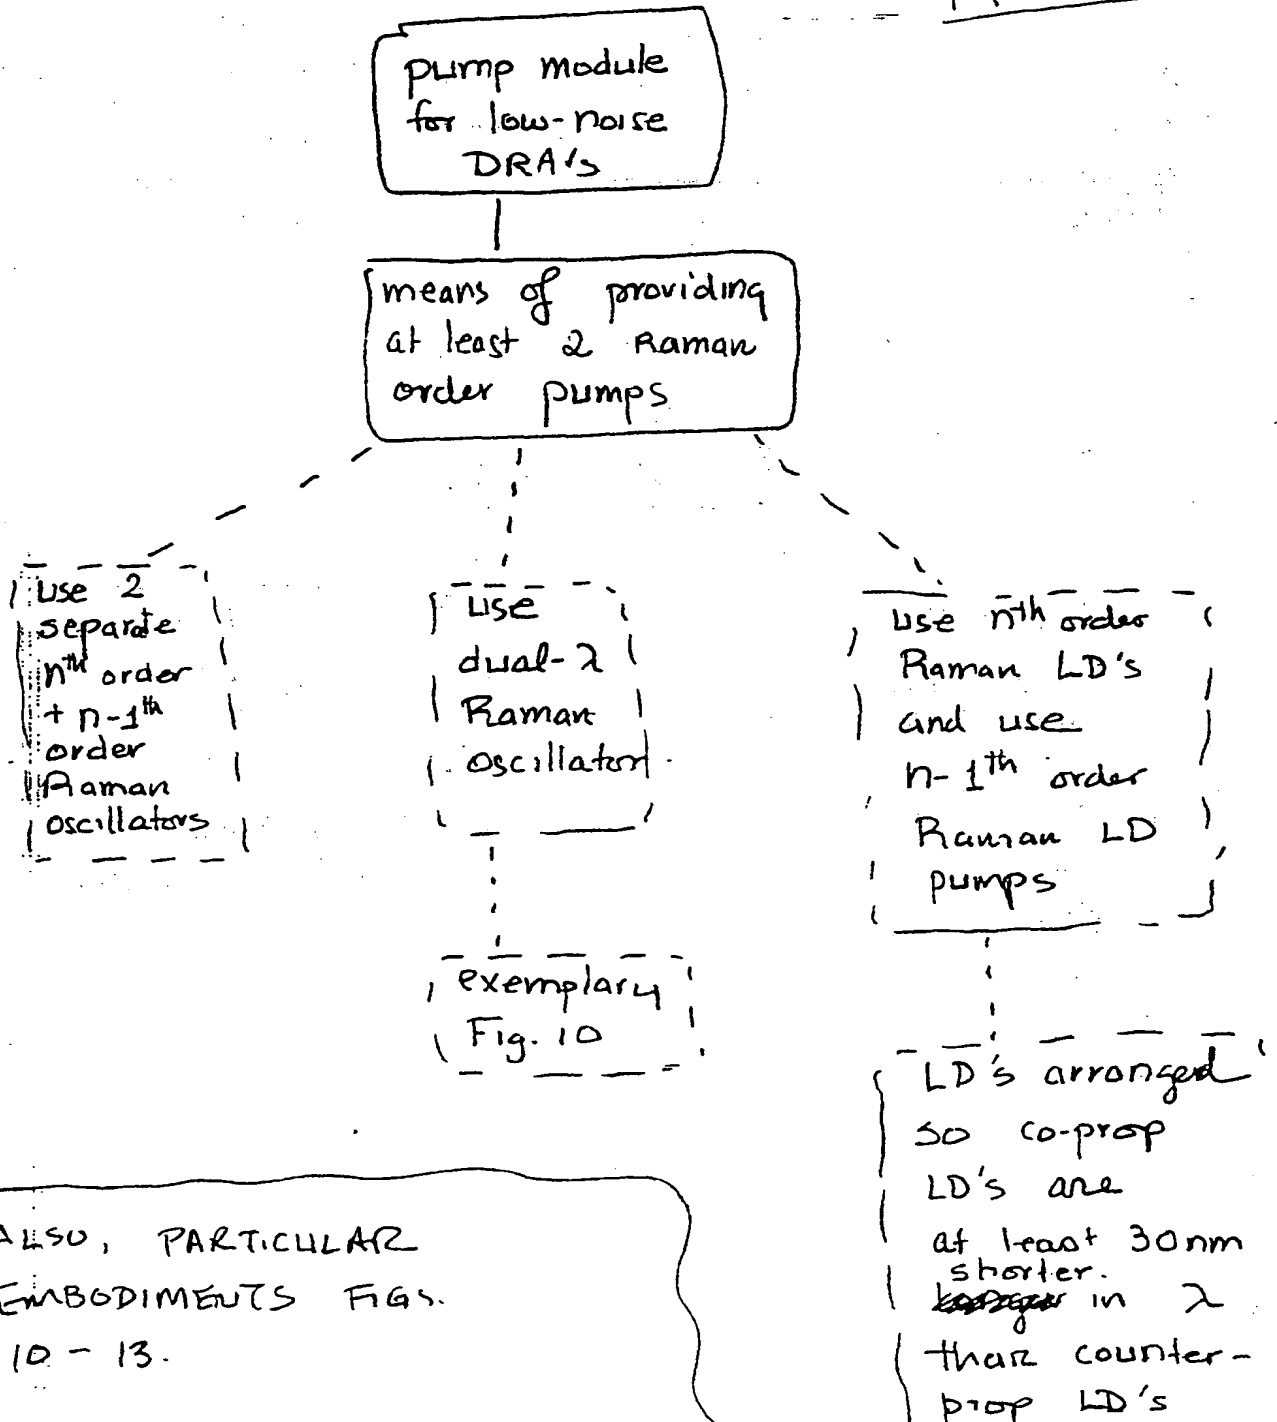 pump module
for low-noise
DRA's
means of providing
at least 2 Raman
order pumps
use 2
separate
nth order
+ n-1th
order
Raman
oscillators
use
dual-λ
Raman
oscillator
use nth order
Raman LD's
and use
n-1th order
Raman LD
pumps
exemplary
Fig. 10
LD's arranged
so co-prop
LD's are
at least 30nm
shorter.
in λ
than counter-
prop LD's
ALSO, PARTICULAR
EMBODIMENTS FIGS.
10 - 13.